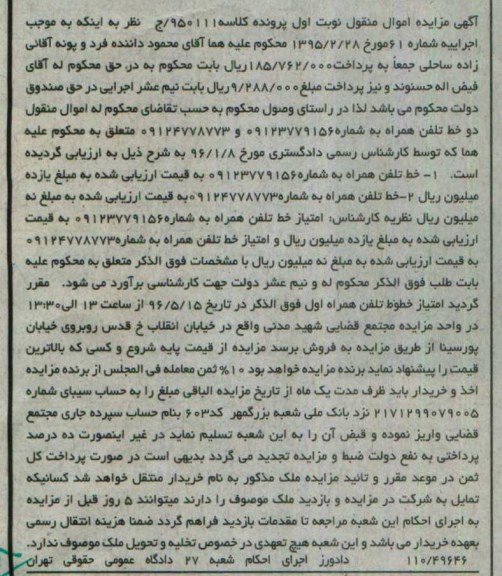 آگهی مزایده اموال منقول نوبت اول پرونده کلاسه۹۵۰۱۱۱/ج نظر به اینکه به موجب
اجراییه شماره ۶۱مورخ ۱۳۹۵/۲/۲۸ محکوم علیه هما آقای محمود داننده فرد و پونه آقائی
زاده ساحلی جمعاً به پرداخت۱۸۵/۷۶۲/۰۰۰ریال بابت محکوم به در. حق محکوم له آقای
فیض اله حسنوند و نیز پرداخت مبلغ۹/۲۸۸/۰۰۰ریال بابت نیم عشر اجرایی در حق صندوق
دولت محکوم می باشد لذا در راستای وصول محکوم به حسب تقاضای محکوم له اموال منقول
دو خط تلفن همراه به شماره۰۹۱۲۳۷۷۹۱۵۶ و ۰۹۱۲۴۷۷۸۷۷۳ متعلق به محکوم علیه
هما که توسط کارشناس رسمی دادگستری مورخ ۹۶/۱/۸ به شرح ذیل به ارزیابی گردیده
است. ۱- خط تلفن همراه به شماره۰۹۱۲۳۷۷۹۱۵۶ به قیمت ارزیابی شده به مبلغ یازده
میلیون ریال ۲-خط تلفن همراه به شماره۰۹۱۲۴۷۷۸۷۷۳به قیمت ارزیابی شده به مبلغ نه
میلیون ریال نظریه کارشناس: امتیاز خط تلفن همراه به شماره۰۹۱۲۳۷۷۹۱۵۶ به قیمت
ارزیابی شده به مبلغ یازده میلیون ریال و امتیاز خط تلفن همراه به شماره۰۹۱۲۴۷۷۸۷۷۳
به قیمت ارزیابی شده به مبلغ نه میلیون ریال با مشخصات فوق الذکر متعلق به محکوم علیه
بابت طلب فوق الذکر محکوم له و نیم عشر دولت جهت کارشناسی برآورد می شود. مقرر
گردید امتیاز خطوط تلفن همراه اول فوق الذکر در تاریخ ۹۶/۵/۱۵ از ساعت ۱۳ الی۱۳:۳۰
در واحد مزایده مجتمع قضایی شهید مدنی واقع در خیابان انقلاب خ قدس روبروی خیابان
پورسینا از طریق مزایده به فروش برسد مزایده از قیمت پایه شروع و کسی که بالاترین
قیمت را پیشنهاد نماید برنده مزایده خواهد بود ۱۰% ثمن معامله فی المجلس از برنده مزایده
اخذ و خریدار باید ظرف مدت یک ماه از تاریخ مزایده الباقی مبلغ را به حساب سیبای شماره
۲۱۷۱۲۹۹۰۷۹۰۰۵ نزد بانک ملی شعبه بزرگمهر کد۶۰۳ بنام حساب سپرده جاری مجتمع
قضایی واریز نموده و قبض آن را به این شعبه تسلیم نماید در غیر اینصورت ده درصد
پرداختی به نفع دولت ضبط و مزایده تجدید می گردد بدیهی است در صورت پرداخت کل
ثمن در موعد مقرر و تائید مزایده ملک مذکور به نام خریدار منتقل خواهد شد کسانیکه
تمایل به شرکت در مزایده و بازدید ملک موصوف را دارند میتوانند ۵ روز قبل از مزایده
به اجرای احکام این شعبه مراجعه تا مقدمات بازدید فراهم گردد ضمنا هزینه انتقال رسمی
بعهده خریدار می باشد و این شعبه هیچ تعهدی در خصوص تخلیه و تحویل ملک موصوف ندارد.
۱۱۰/۴۹۶۴۶ دادورز اجرای احکام شعبه ۲۷ دادگاه عمومی حقوقی تهران